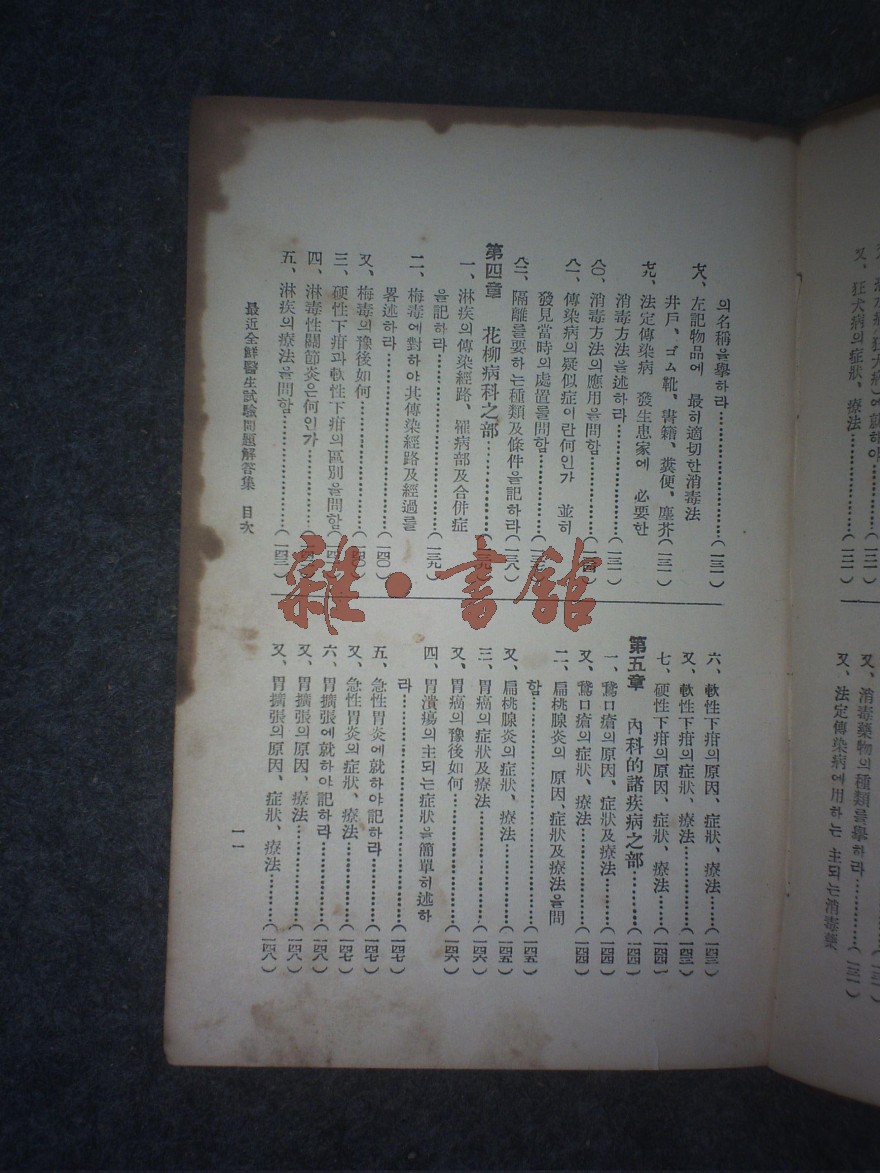 又、狂犬病의症狀、療法……(一三一)
又、消毒藥物의種類를擧하라……(一三一)
又、法定傳染病에用하는 主되는消毒藥
의名稱을擧하라……(一三一)
六、左記物品에 最히適切한消毒法
井戶、ゴム靴、書籍、糞便、塵芥(一三一)
九、法定傳染病 發生患家에 必要한
消毒方法을述하라……(一三一)
八〇、消毒方法의應用을問함……
八一、傳染病의疑似症이란何인가 並히
發見當時의處置를問함……(一三七)
八二、隔離를要하는種類及條件을記하라(一三八)
第四章 花柳病科之部……(一三九)
一、淋疾의傳染經路、罹病部及合併症
을記하라……(一三九)
二、梅毒에對하야其傳染經路及經過를
畧述하라……(一四〇)
又、梅毒의豫後如何……(一四〇)
三、硬性下疳과軟性下疳의區別을問함
四、淋毒性關節炎은何인가……
五、淋疾의療法을問함……(一四二)
六、軟性下疳의原因、症狀、療法……(一四三)
又、軟性下疳의症狀、療法……(一四三)
七、硬性下疳의原因、症狀、療法……(一四四)
第五章 內科的諸疾病之部……(一四四)
一、鵞口瘡의原因、症狀及療法……(一四四)
又、鵞口瘡의症狀、療法……(一四四)
二、扁桃腺炎의 原因、症狀及療法을問
함……(一四五)
又、扁桃腺炎의症狀、療法……(一四五)
三、胃癌의症狀及療法……(一四六)
又、胃癌의豫後如何……(一四六)
四、胃潰瘍의主되는症狀을簡單히述하
라……(一四七)
五、急性胃炎에就하야記하라……(一四七)
又、急性胃炎의症狀、療法……(一四七)
六、胃擴張에就하야記하라……(一四八)
又、胃擴張의原因、療法……(一四八)
又、胃擴張의原因、症狀、療法……(一四八)
最近全鮮醫生試驗問題解答集 目次
一一
雜·書館